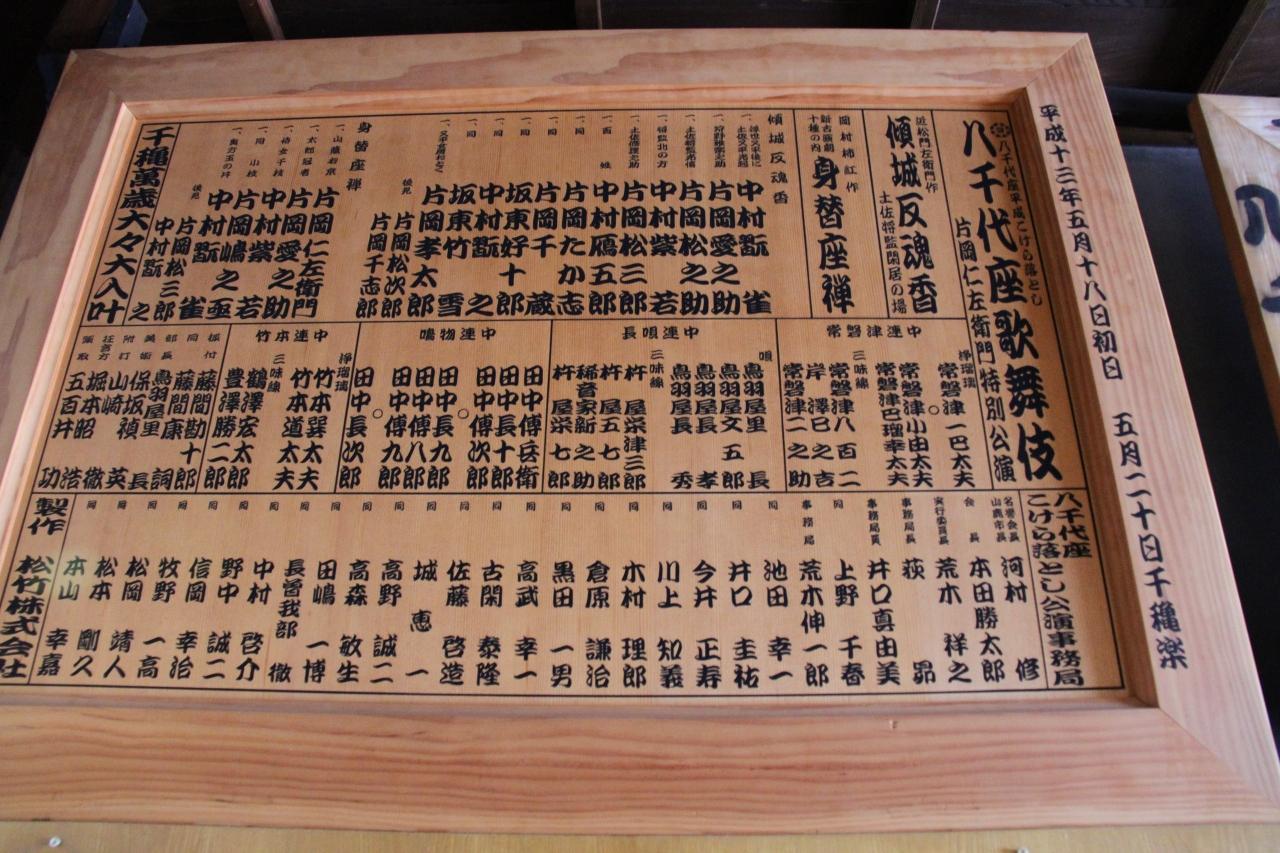 平成十三年五月十八日初日 五月二十日千穐楽
八千代座平成こけら落とし
八千代座歌舞伎
片岡仁左衛門特別公演
近松門左衛門作
傾城反魂香
土佐将監閑居の場
岡村柿紅作
新古演劇十種の内
身替座禅
傾城反魂香
中村翫雀
一、狩野雅楽之助 片岡愛之助
片岡松之助
一、将監北の方 中村紫若
一、土佐修理之助 片岡松三郎
一、百姓 中村鴈五郎
一、同 片岡たか志
一、同 片岡千蔵
一、同 坂東好十郎
一、同 中村翫之
一、同 坂東竹雪
一、又平女房おとく 片岡孝太郎
後見 片岡松次郎
片岡千志郎
身替座禅
一、山蔭右京 片岡仁左衛門
一、太郎冠者 片岡愛之助
一、侍女千枝 中村紫若
一、同 小枝 片岡嶋之亟
一、奥方玉の井 中村翫雀
後見 片岡松三郎
中村翫之
千穐萬歳大々大入叶
常磐津連中
浄瑠璃
常磐津一巴太夫
常磐津小由太夫
常磐津巴瑠幸太夫
三味線
常磐津八百二
岸澤巳之吉
常磐津二之助
長唄連中
唄
鳥羽屋里長
鳥羽屋文五郎
鳥羽屋長孝
鳥羽屋長秀
三味線
杵屋栄津三郎
杵屋五七郎
稀音家新之助
杵屋栄七郎
鳴物連中
田中傳兵衛
田中長十郎
田中傳次郎
田中長九郎
田中傳八郎
田中傳九郎
田中長次郎
竹本連中
浄瑠璃
竹本巽太夫
竹本道太夫
三味線
鶴澤宏太郎
豊澤勝二郎
振付 藤間勘十郎
同 藤間康詞
部長 鳥羽屋里長
美術 保坂禎
附打 山崎英徹
狂言方 堀本昭浩
頭取 五百井功
八千代座
こけら落とし公演事務局
名誉会長
山鹿市長 河村修
会長 本田勝太郎
実行委員長 荒木祥之
事務局長 荻昴
事務局員 井口真由美
同 上野千春
事務局 荒木伸一郎
同 池田幸一
同 井口圭祐
同 今井正寿
同 川上知義
同 木村理郎
同 倉原謙治
同 黒田一男
同 高武幸一
同 古閑泰隆
同 佐藤啓造
同 城恵一
同 高野誠二
同 高森敏生
同 田嶋一博
同 長曽我部徹
同 中村啓介
同 野中誠二
同 信岡幸治
同 牧野一高
同 松岡靖人
同 松本剛久
同 本山幸嘉
製作 松竹株式会社
八